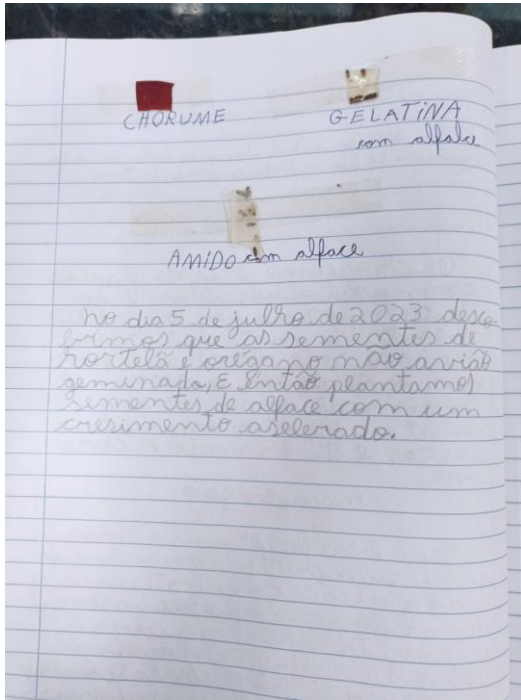 CHORUME
GELATINA
com alface
AMIDO com alface
No dia 5 de julho de 2023 desco-
brimos que as sementes de
hortelã e orégano não avião
geminado, E então plantamos
sementes de alface com um
cresimento aselerado.